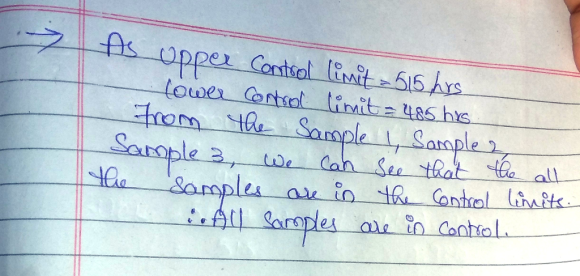 → As Upper Control limit = 515 hrs
lower Control limit = 485 hrs
From the Sample 1, Sample 2,
Sample 3, we can see that the all
the samples are in the Control limits.
∴ All samples are in control.